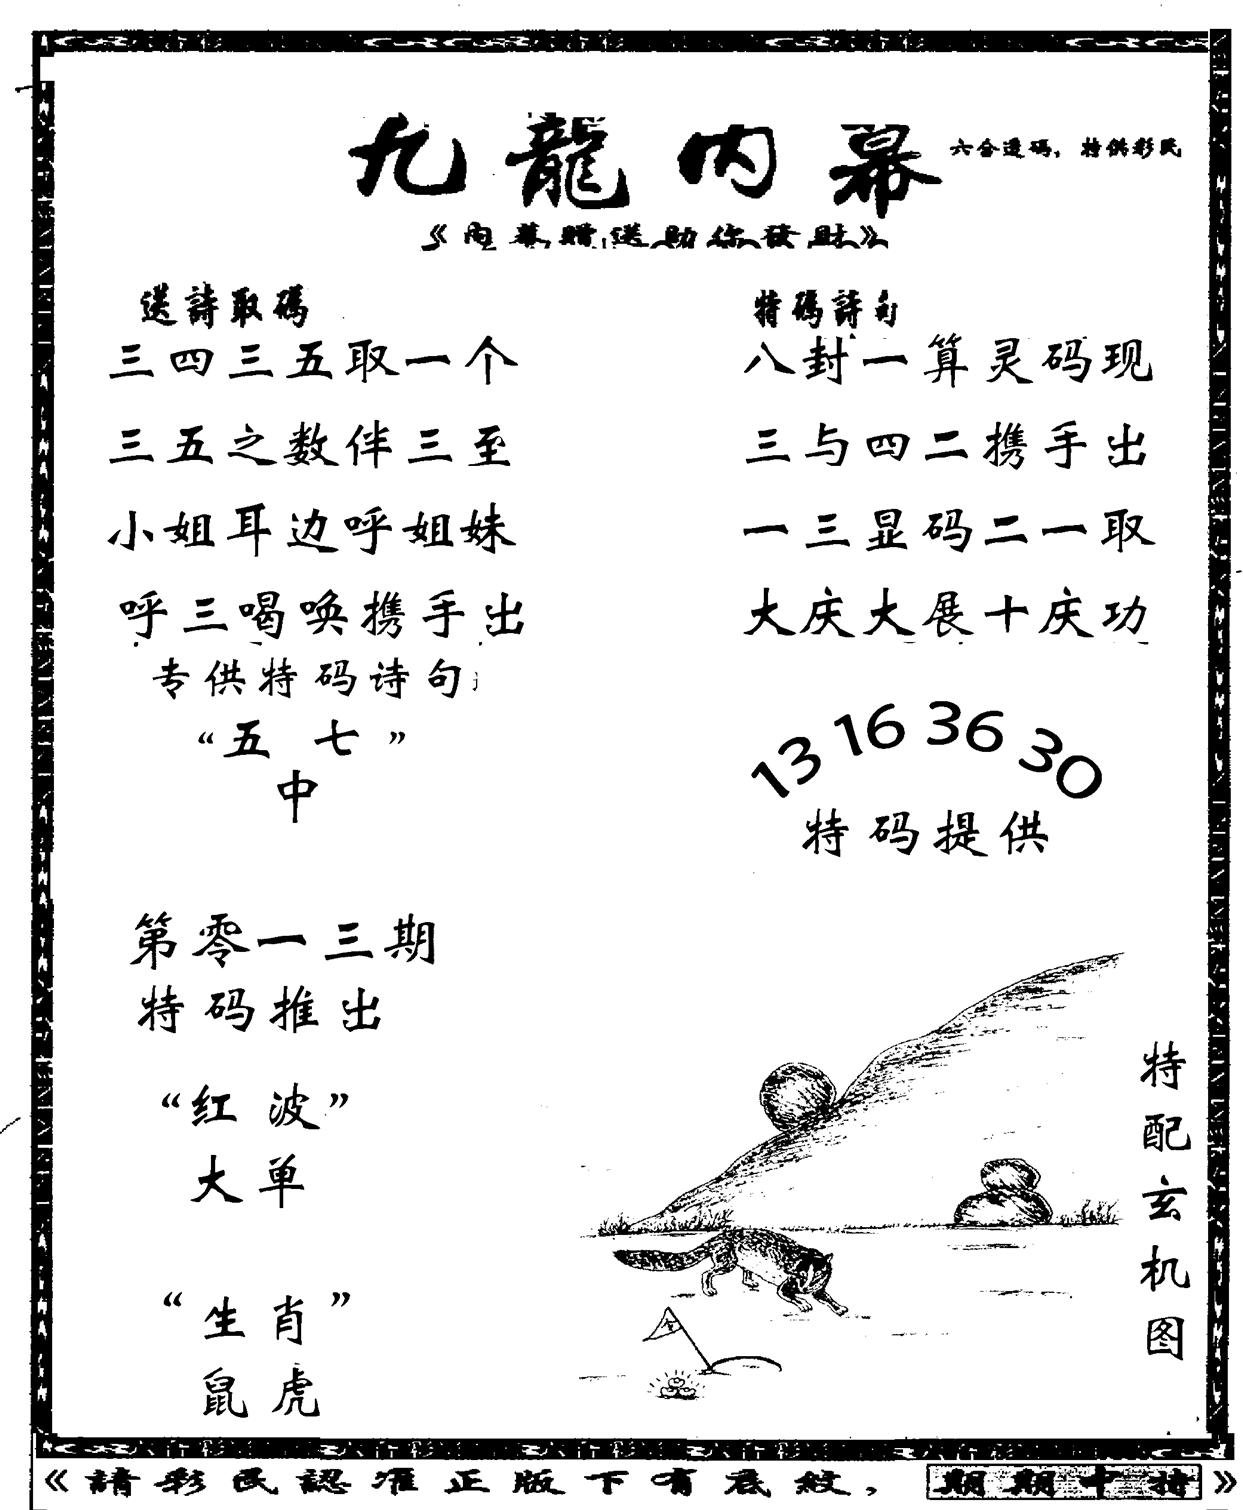 九龍内幕
六合透码，特供彩民
《內幕贈送助你發財》
送詩取碼
三四三五取一个
三五之数伴三至
小姐耳边呼姐妹
呼三喝唤携手出
专供特码诗句
“五七”
中
特碼詩句
八封一算灵码现
三与四二携手出
一三显码二一取
大庆大展十庆功
13 16 36 30
特码提供
第零一三期
特码推出
“红波”
大单
“生肖”
鼠虎
特配玄机图
《請彩民認准正版下有底紋，期期中特》